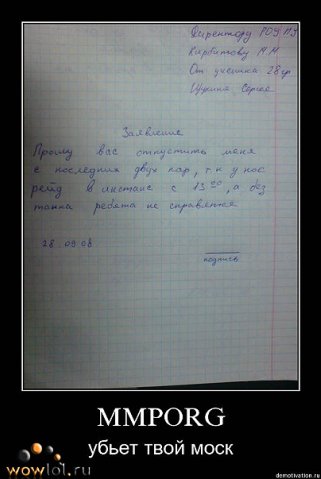 Директору РОУ МУ
Курбатову М.М
От ученика 28гр
Щукина Сергея
Заявление
Прошу вас отпустить меня
с последних двух пар, т.к у нас
рейд в инстанс с 13 00, а без
танка ребята не справятся
28.09.08
подпись
MMPORG
убьет твой моск
wowlol.ru
demotivation.ru